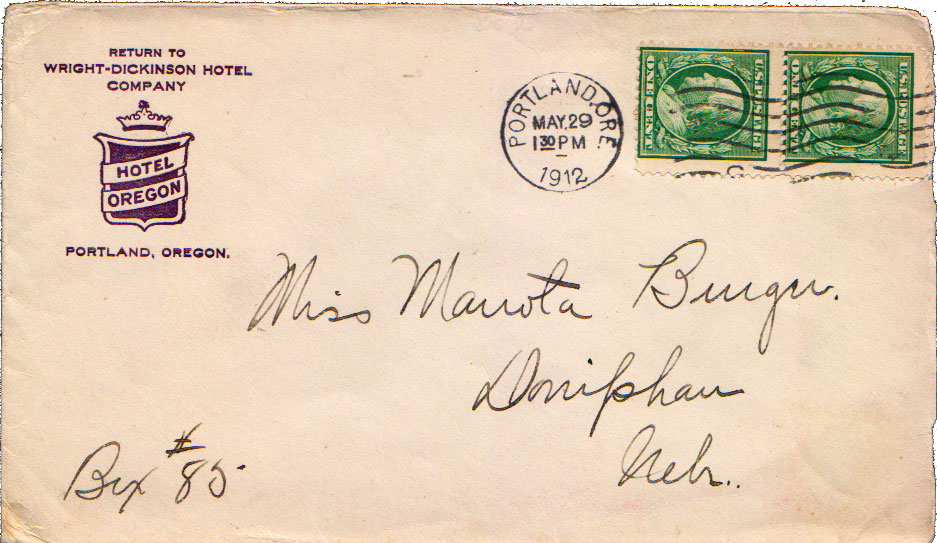 RETURN TO
WRIGHT-DICKINSON HOTEL
COMPANY
HOTEL
OREGON
PORTLAND, OREGON.
PORTLAND, ORE.
MAY. 29
1 30 PM
1912
U.S. POSTAGE
ONE CENT
U.S. POSTAGE
ONE CENT
Miss
Doniphan
Nebr.
Box # 85